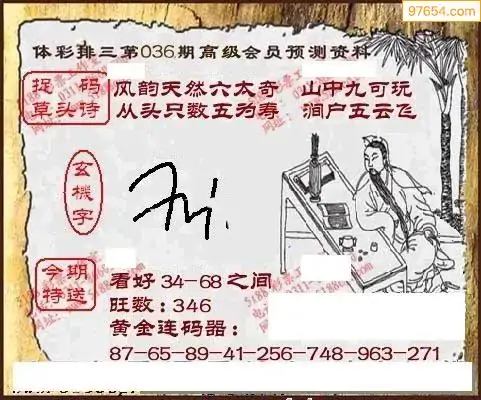 97654.com
体彩排三第036期高级会员预测资料
捉码
草头诗
风韵天然六太奇 山中九可玩
从头只数五为寿 涧户五云飞
玄機字
今期
特送
看好34-68之间
旺数:346
黄金连码器:
87-65-89-41-256-748-963-271